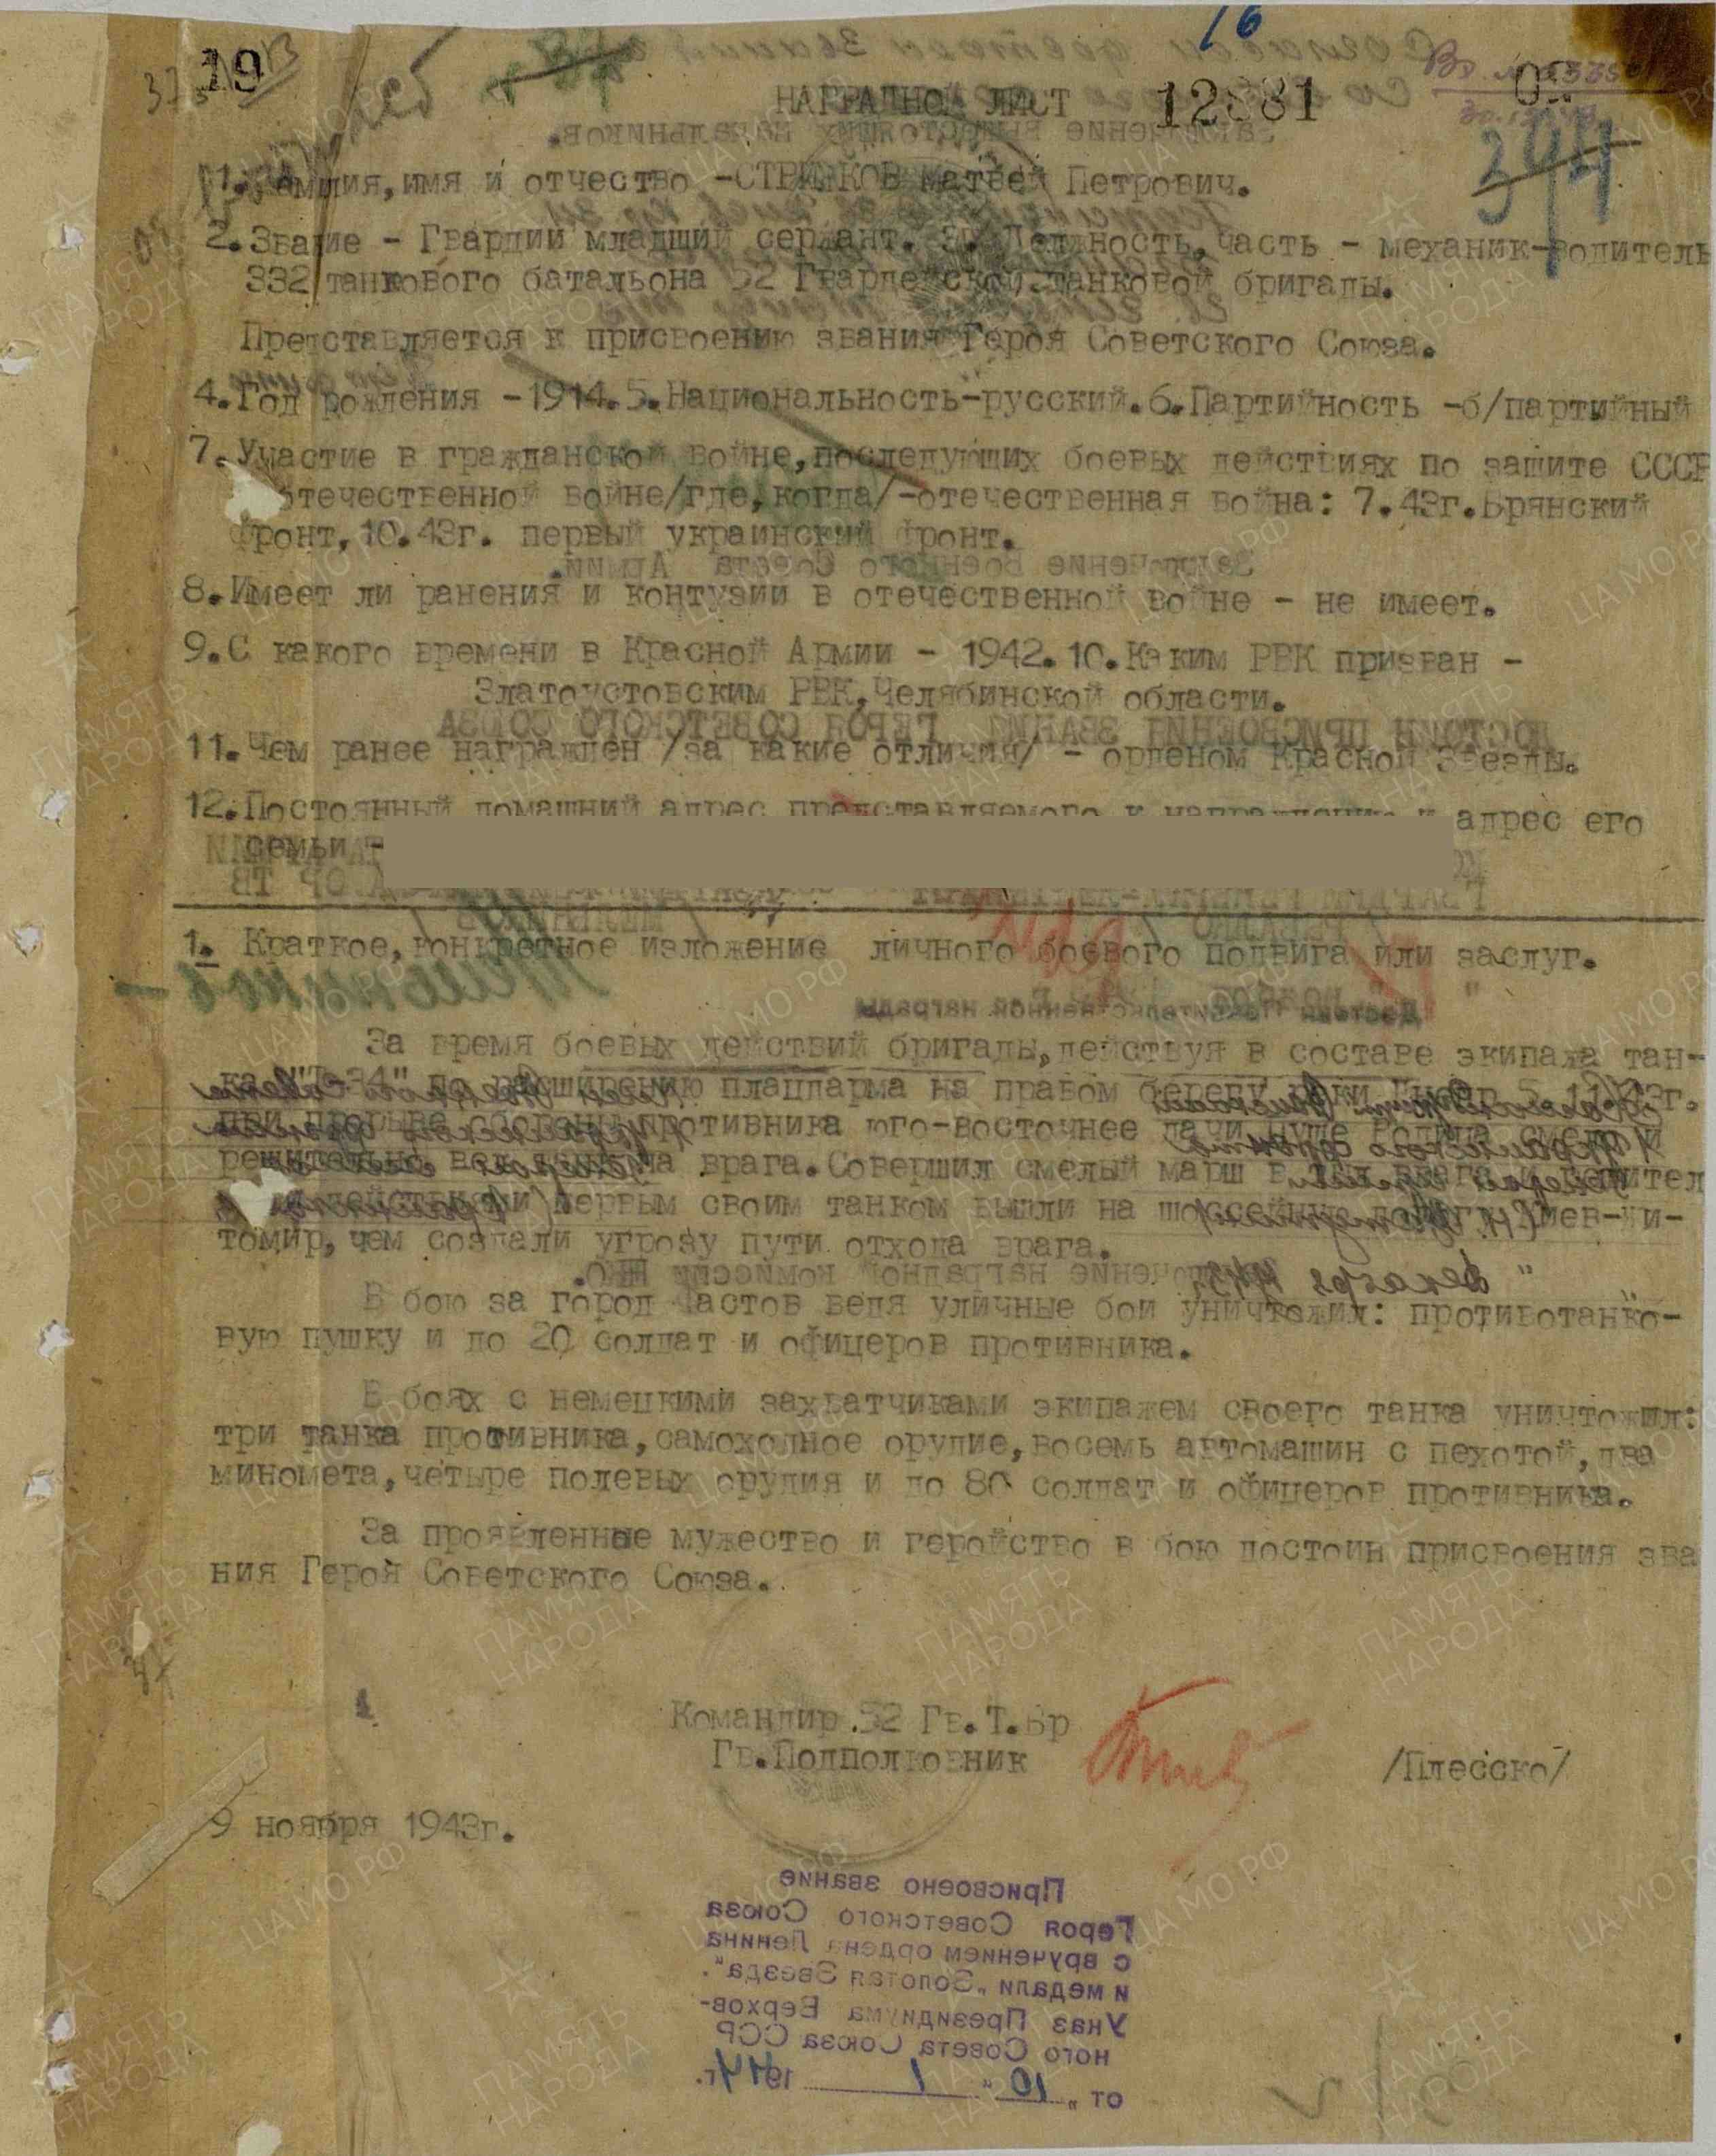 16
19
НАГРАДНОЙ ЛИСТ 12881
394
1. Фамилия, имя и отчество - СТРИЖКОВ Матвей Петрович.
2. Звание - Гвардии младший сержант. 3. Должность, часть - механик-водитель
332 танкового батальона 52 Гвардейской танковой бригады.
Представляется к присвоению звания Героя Советского Союза.
4. Год рождения - 1914. 5. Национальность - русский. 6. Партийность - б/партийный
7. Участие в гражданской войне, последующих боевых действиях по защите СССР
отечественной войне /где, когда/ - отечественная война: 7.43г. Брянский
фронт, 10.43г. первый украинский фронт.
Заключение Военного Совета Армии.
8. Имеет ли ранения и контузии в отечественной войне - не имеет.
9. С какого времени в Красной Армии - 1942. 10. Каким РВК призван -
Златоустовским РВК, Челябинской области.
ДОСТОИН ПРИСВОЕНИЯ ЗВАНИЯ ГЕРОЯ СОВЕТСКОГО СОЮЗА
11. Чем ранее награжден /за какие отличия/ - орденом Красной Звезды.
12. Постоянный домашний адрес представляемого к награждению и адрес его
семьи -
1. Краткое, конкретное изложение личного боевого подвига или заслуг.
Достоин Правительственной награды
За время боевых действий бригады, действуя в составе экипажа тан-
ка "Т-34" по расширению плацдарма на правом берегу реки Днепр 5.11.43г.
при прорыве обороны противника юго-восточнее дачи Пуще Водица смело и
решительно вел танк на врага. Совершил смелый марш в тыл врага и решител
действиями первым своим танком вышли на шоссейную дорогу Киев-Жи-
томир, чем создали угрозу пути отхода врага.
Заключение наградной комиссии НКО.
В бою за город Фастов ведя уличные бои уничтожил: противотанко-
вую пушку и до 20 солдат и офицеров противника.
В боях с немецкими захватчиками экипажем своего танка уничтожил:
три танка противника, самоходное орудие, восемь автомашин с пехотой, два
миномета, четыре полевых орудия и до 80 солдат и офицеров противника.
За проявленные мужество и геройство в бою достоин присвоения зва
ния Героя Советского Союза.
Командир 52 Гв.Т.Бр
Гв.Подполковник /Плесско/
9 ноября 1943г.
Присвоено звание
Героя Советского Союза
с вручением ордена Ленина
и медали „Золотая Звезда“.
Указ Президиума Верхов-
ного Совета Союза ССР
от „10“ 1 1944г.